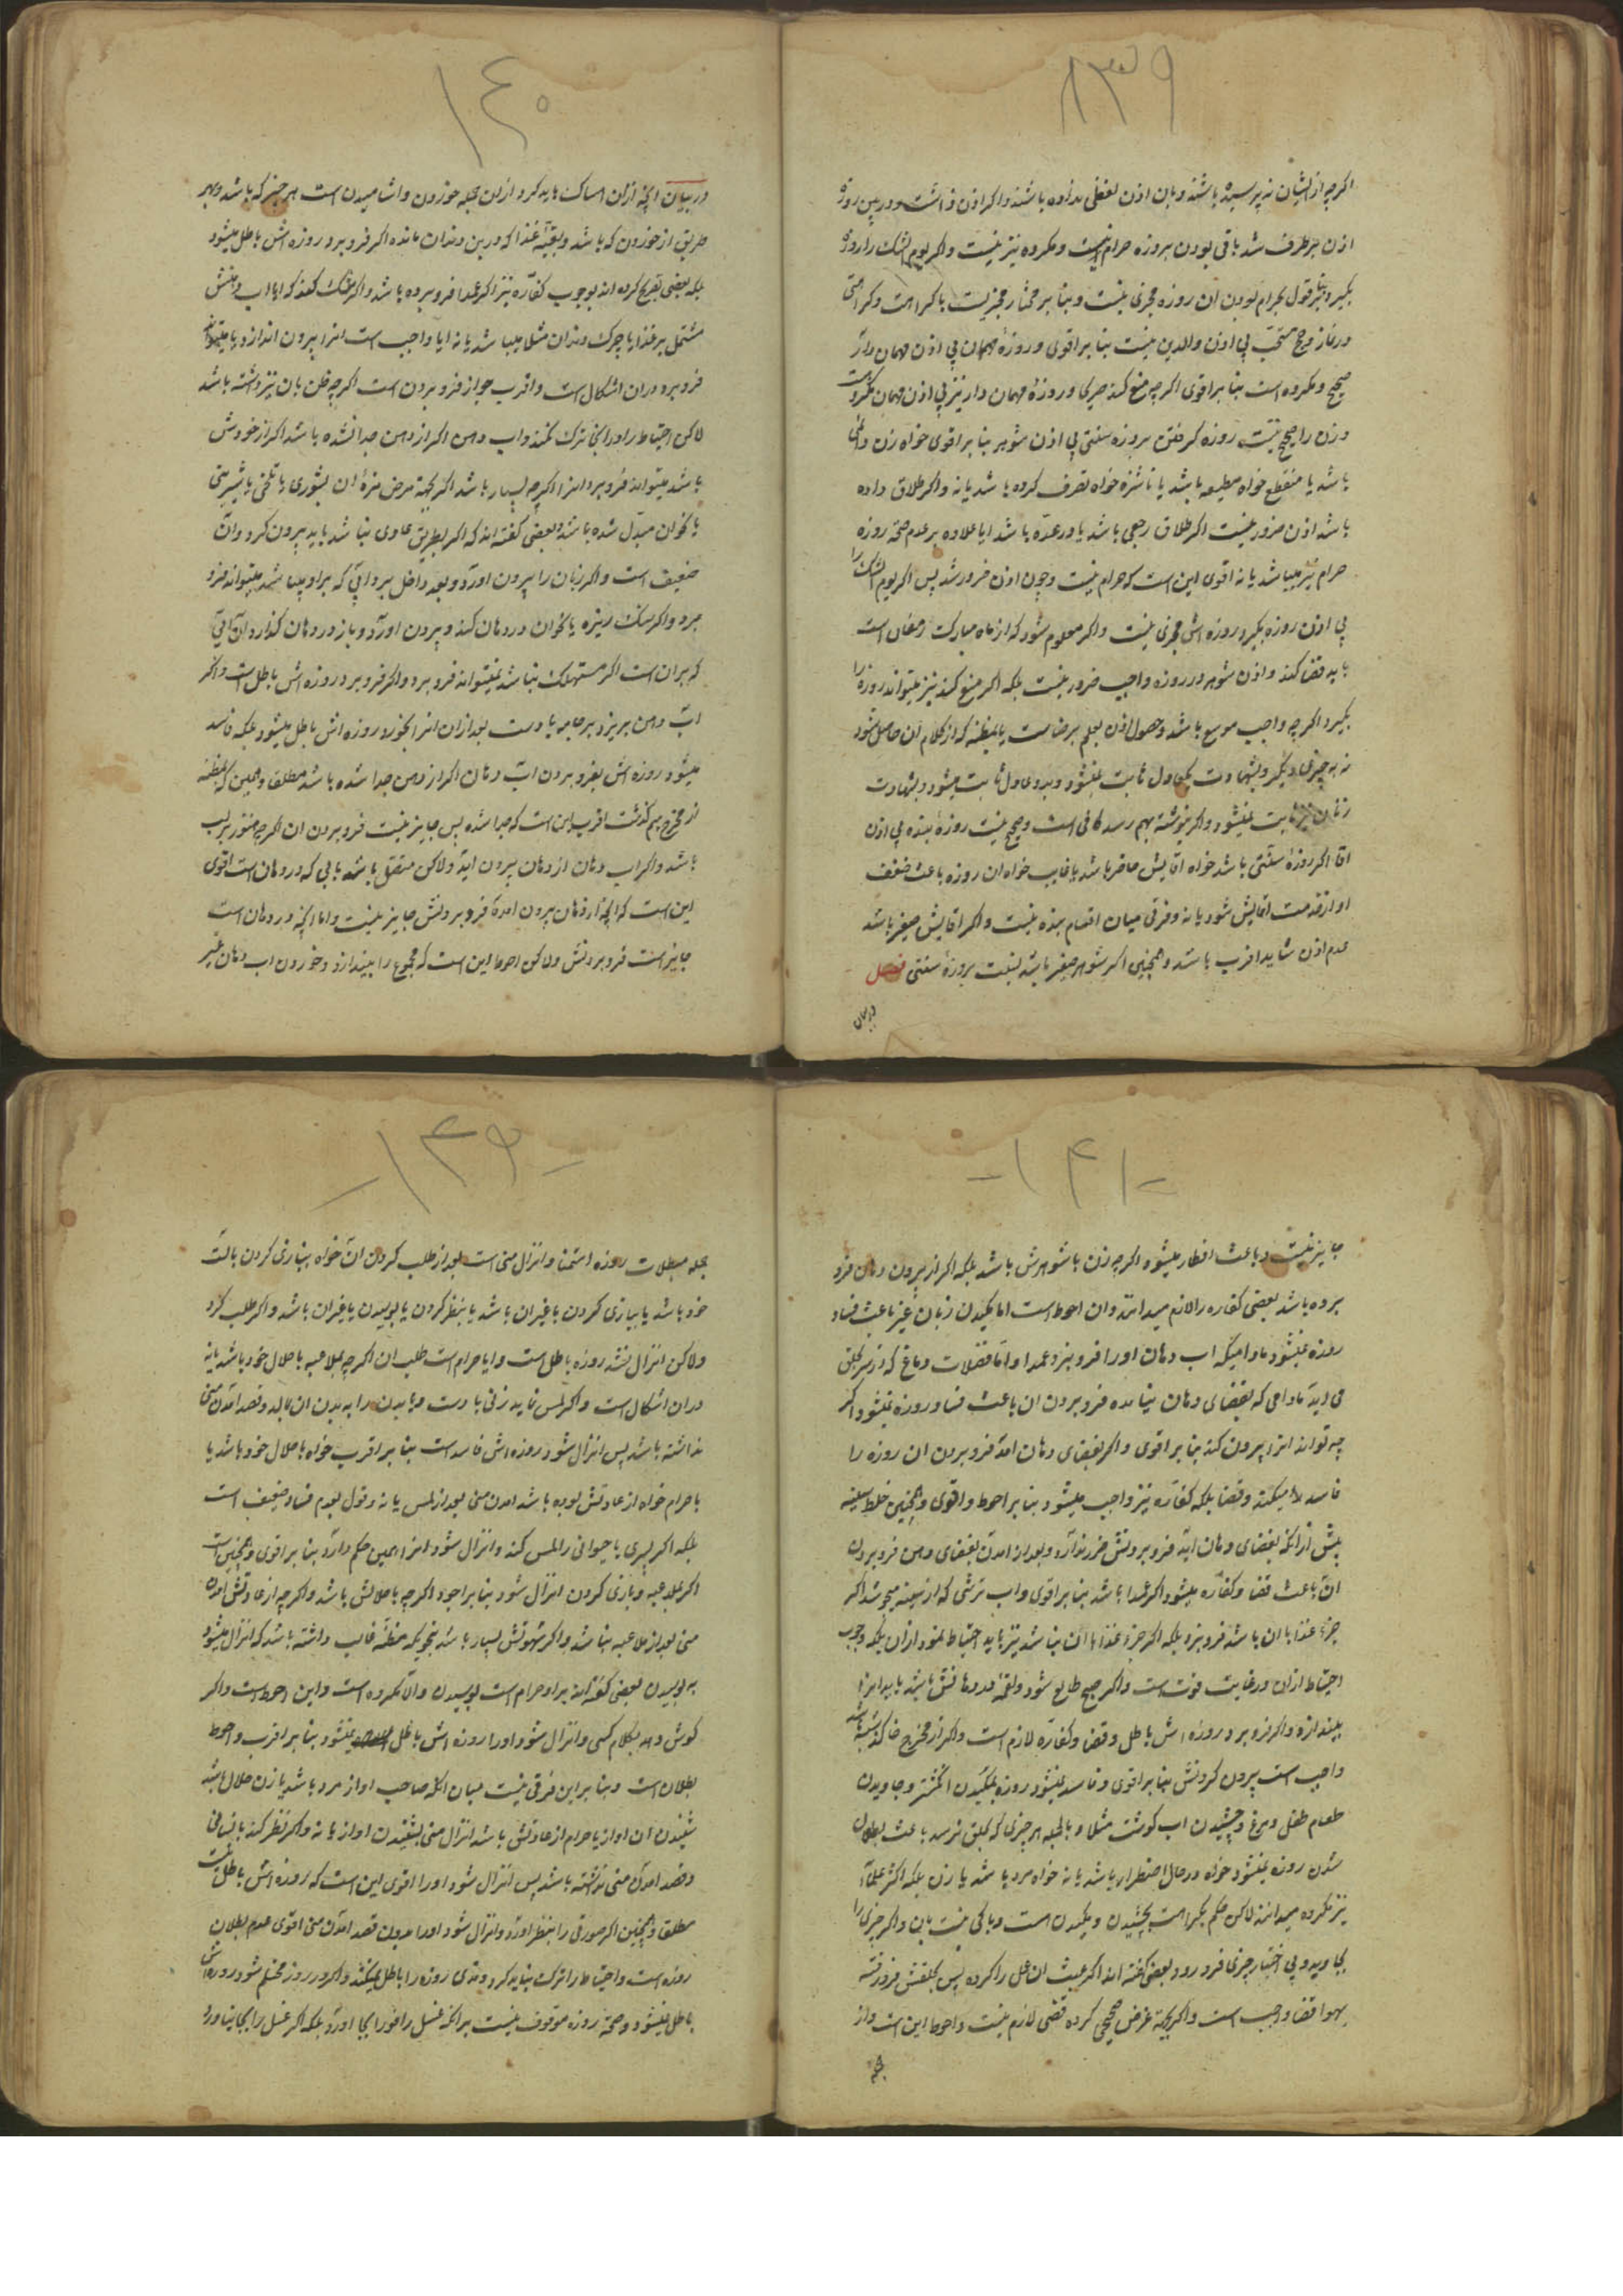 ۱۳۹
اکرچه از ایشان نه پرسیده باشند و بان اذن لفظی نداده باشند و اکر اذن داشت و در بین روزه
اذن بر طرف شد باقی بودن بروزه حرام نیست و مکروه نیز نیست و اکر یوم الشک را روزه
بکیرد بنابر قول بحرام بودن ان روزه مجزی نیست و بنا بر مختار مجزیست با کراهت و کراهتی
در نماز و حج مستحب بی اذن والدین نیست بنا بر اقوی و روزهٔ مهمان بی اذن مهمان دار
صحیح و مکروه است بنا بر اقوی اکرچه منع کند صریحا و روزهٔ مهمان دار نیز بی اذن مهمان مکروه است
و زن را صحیح نیست روزه کرفتن بروزه سنتی بی اذن شوهر بنا بر اقوی خواه زن دائمی
باشد یا منقطع خواه مطیعه باشد یا ناشزه خواه تصرف کرده باشد یا نه و اکر طلاق داده
باشد اذن ضرور نیست اکر طلاق رجعی باشد یا در عدّه باشد ایا علاوه بر عدم صحة روزه
حرام نیز میباشد یا نه اقوی این است که حرام نیست و چون اذن ضرور شد پس اکر یوم الشک را
بی اذن روزه بکیرد روزه اش مجزی نیست و اکر معلوم شود که از ماه مبارک رمضان است
باید قضا کند و اذن شوهر در روزه واجب ضرور نیست بلکه اکر منع کند نیز میتواند روزه را
بکیرد اکرچه واجب موسع باشد و حصول اذن بعلم برضاست یا بمظنه که از کلام ان حاصل شود
نه به چیزی دیکر و بشهادت یکعادل ثابت نمیشود و بدو عادل ثابت میشود و بشهادت
زنان نیز ثابت نمیشود و اکر نوشته بهم رسد کافی است و صحیح نیست روزهٔ بنده بی اذن
اقا اکر روزهٔ سنّتی باشد خواه اقایش حاضر باشد یا غایب خواه ان روزه باعث ضعف
او از خدمت اقایش شود یا نه و فرقی میان اقسام بنده نیست و اکر اقایش صغیر باشد
عدم اذن شاید اقرب باشد و همچنین اکر شوهر صغیر باشد نسبت بروزهٔ سنتی فصل
در بیان
۱٤۰
در بیان انچه ازان امساک باید کرد ازان جمله خوردن و اشامیدن است هر چیز که باشد و بهر
طریق از خوردن که باشد و بقیّه غذا که در بین دندان مانده اکر فرو برد روزه اش باطل میشود
بلکه بعضی تصریح کرده اند بوجوب کفّاره نیز اکر عمدا فرو برده باشد و اکر شک کند که ایا اب دهنش
مشتمل بر غذا یا چرک دندان مثلا میباشد یا نه ایا واجب است انرا بیرون اندازد یا میتواند
فرو برد دران اشکال است و اقرب جواز فرو بردن است اکرچه ظن بان نیز داشته باشد
لاکن احتیاط را در اینجا ترک نکند و اب دهن اکر از دهن جدا نشده باشد اکر از خودش
باشد میتواند فرو برد انرا اکرچه بسیار باشد اکر بجهة مرض مزهٔ ان بشوری یا تلخی یا شیرینی
یا بخوان مبدّل شده باشد و بعضی کفته اند که اکر بطریق عادی نباشد باید بیرون کرد و ان
ضعیف است و اکر زبان را بیرون اورد و بعد داخل برد ابی که بر او میباشد میتواند فرو
برد و اکر سنک ریزه یا نخوان در دهان کند و بیرون اورد و باز در دهان کذارد ان آبی
که بران است اکر مستهلک نباشد نمیتواند فرو برد و اکر فرو برد روزه اش باطل است و اکر
اب دهن بریزد بر جامه یا دست بعد ازان انرا بخورد روزه اش باطل میشود بلکه فاسد
میشود روزه اش بفرو بردن اب دهان اکر از دهن جدا شده باشد مطلقا و همین که بمظنه
از مخرج هم کذشت اقرب این است که جدا شده پس جایز نیست فرو بردن ان اکرچه هنوز بر لب
باشد و اکر اب دهان از دهان بیرون اید ولاکن متصل باشد بابی که در دهان است اقوی
این است که انچه از دهان بیرون امده فرو بردنش جایز نیست و اما انچه در دهان است
جایز است فرو بردنش ولاکن احوط این است که مجموع را بیندازد و خوردن اب دهان غیر
- ۱۴۱ -
جایز نیست و باعث افطار میشود اکرچه زن با شوهرش باشد بلکه اکر از بیرون دهان فرو
برده باشد بعضی کفاره را لازم میدانند و ان احوط است اما مکیدن زبان غیر باعث فساد
روزه نمیشود مادامیکه اب دهان او را فرو نبرد عمدا و اما فضلات دماغ که از سر بحلق
می اید مادامی که بفضای دهان نیامده فرو بردن ان باعث فساد روزه نمیشود اکر
چه تواند انرا بیرون کند بنا بر اقوی و اکر بفضای دهان امد فرو بردن ان روزه را
فاسد میکند و قضا بلکه کفاره نیز واجب میشود بنا بر احوط و اقوی و همچنین خلط سینه
پیش ازانکه بفضای دهان اید فرو بردنش ضرر ندارد و بعد از امدن بفضای دهن فرو بردن
ان باعث قضا و کفّاره میشود اکر عمدا باشد بنا بر اقوی و اب ترشی که از سینه میجوشد اکر
جزء غذا با ان باشد فرو نبرد بلکه اکر جزء غذا با ان نباشد نیز باید احتیاط نمود ازان بلکه وجوب
احتیاط ازان در غایت قوت است و اکر صبح طالع شود و لقمه در دهانش باشد باید انرا
بیندازد و اکر فرو برد روزه اش باطل و قضا و کفّاره لازم است و اکر از مخرج خا کذشته باشد
واجب است بیرون کردنش بنا بر اقوی و فاسد نمیشود روزه بمکیدن انکشتر و جاویدن
طعام طفل و مرغ و چشیدن اب کوشت مثلا و بالجمله هر چیزی که بحلق نرسد باعث بطلان
شدن روزه نمیشود خواه در حال اضطرار باشد یا نه خواه مرد باشد یا زن بلکه اکثر علمآء
نیز مکروه میدانند لاکن حکم بکراهت بچشیدن و مکیدن است و باکی نیست بان و اکر چیزی را
بجاوید و بی اختیار چیزی فرو رود بعضی کفته اند اکر عبث ان عمل را کرده پس بحلقش فرو رفته
سهوا قضا واجب است و اکر بجهة غرض صحیحی کرده قضی لازم نیست و احوط این است و از
جمله
- ۱۳۹ -
جمله مبطلات روزه استمنا و انزال منی است بعد از طلب کردن ان خواه ببازی کردن بالت
خود باشد یا ببازی کردن با غیر ان باشد یا بنظر کردن یا بوسیدن یا غیر ان باشد و اکر طلب کرد
ولاکن انزال نشد روزه باطل است و ایا حرام است طلب ان اکرچه بملاعبه با حلال خود باشد یا نه
دران اشکال است و اکر لمس نماید زنی با دست و یا بدن را به بدن ان مالد و قصد امدن منی
نداشته باشد پس انزال شود روزه اش فاسد است بنا بر اقرب خواه با حلال خود باشد یا
با حرام خواه از عادتش بوده باشد امدن منی بعد از لمس یا نه و قول بعدم فساد ضعیف است
بلکه اکر پسری یا حیوانی را لمس کند و انزال شود انرا همین حکم دارد بنا بر اقوی و همچنین است
اکر بملاعبه و بازی کردن انزال شود بنا بر اجود اکرچه با حلالش باشد و اکرچه از عادتش امدن
منی بعد از ملاعبه نباشد و اکر شهوتش بسیار باشد بنحویکه مظنّه غالب داشته باشد که انزال میشود
به بوسیدن بعضی کفته اند بر او حرام است بوسیدن و الا مکروه است و این احوط است و اکر
کوش دهد بکلام کسی و انزال شود او را روزه اش باطل نمیشود بنا بر اقرب و احوط
بطلان است و بنا بر این فرقی نیست میان انکه صاحب اواز مرد باشد یا زن حلال باشد
شنیدن ان اواز یا حرام از عادتش باشد انزال منی بشنیدن اواز یا نه و اکر نظر کند بانسانی
و قصد امدن منی نداشته باشد پس انزال شود او را اقوی این است که روزه اش باطل نیست
مطلقا و همچنین اکر صورتی را بنظر اورد و انزال شود او را بدون قصد امدن منی اقوی عدم بطلان
روزه است و احتیاط را ترک نباید کرد و مذی روزه را باطل نمیکند و اکر در روز محتلم شود روزه اش
باطل نمیشود و صحة روزه موقوف نیست بر انکه غسل را فورا بجا اورد بلکه اکر غسل را بجا نیاورد